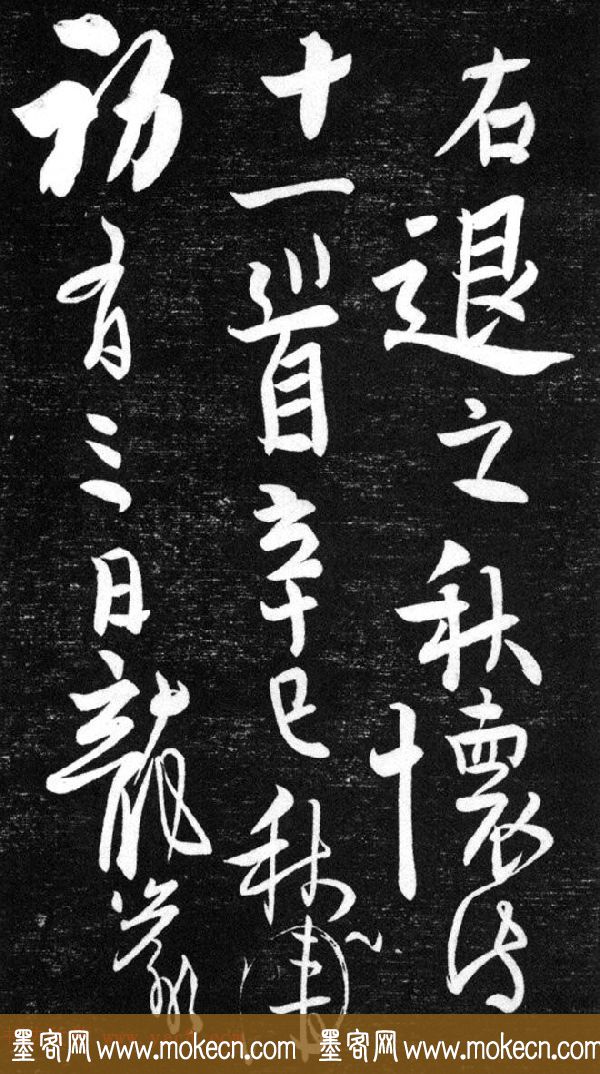 右退之秋懷詩
十一首辛巳秋
初有三日龍
墨客网 www.mokecn.com 墨客网 www.mokecn.com